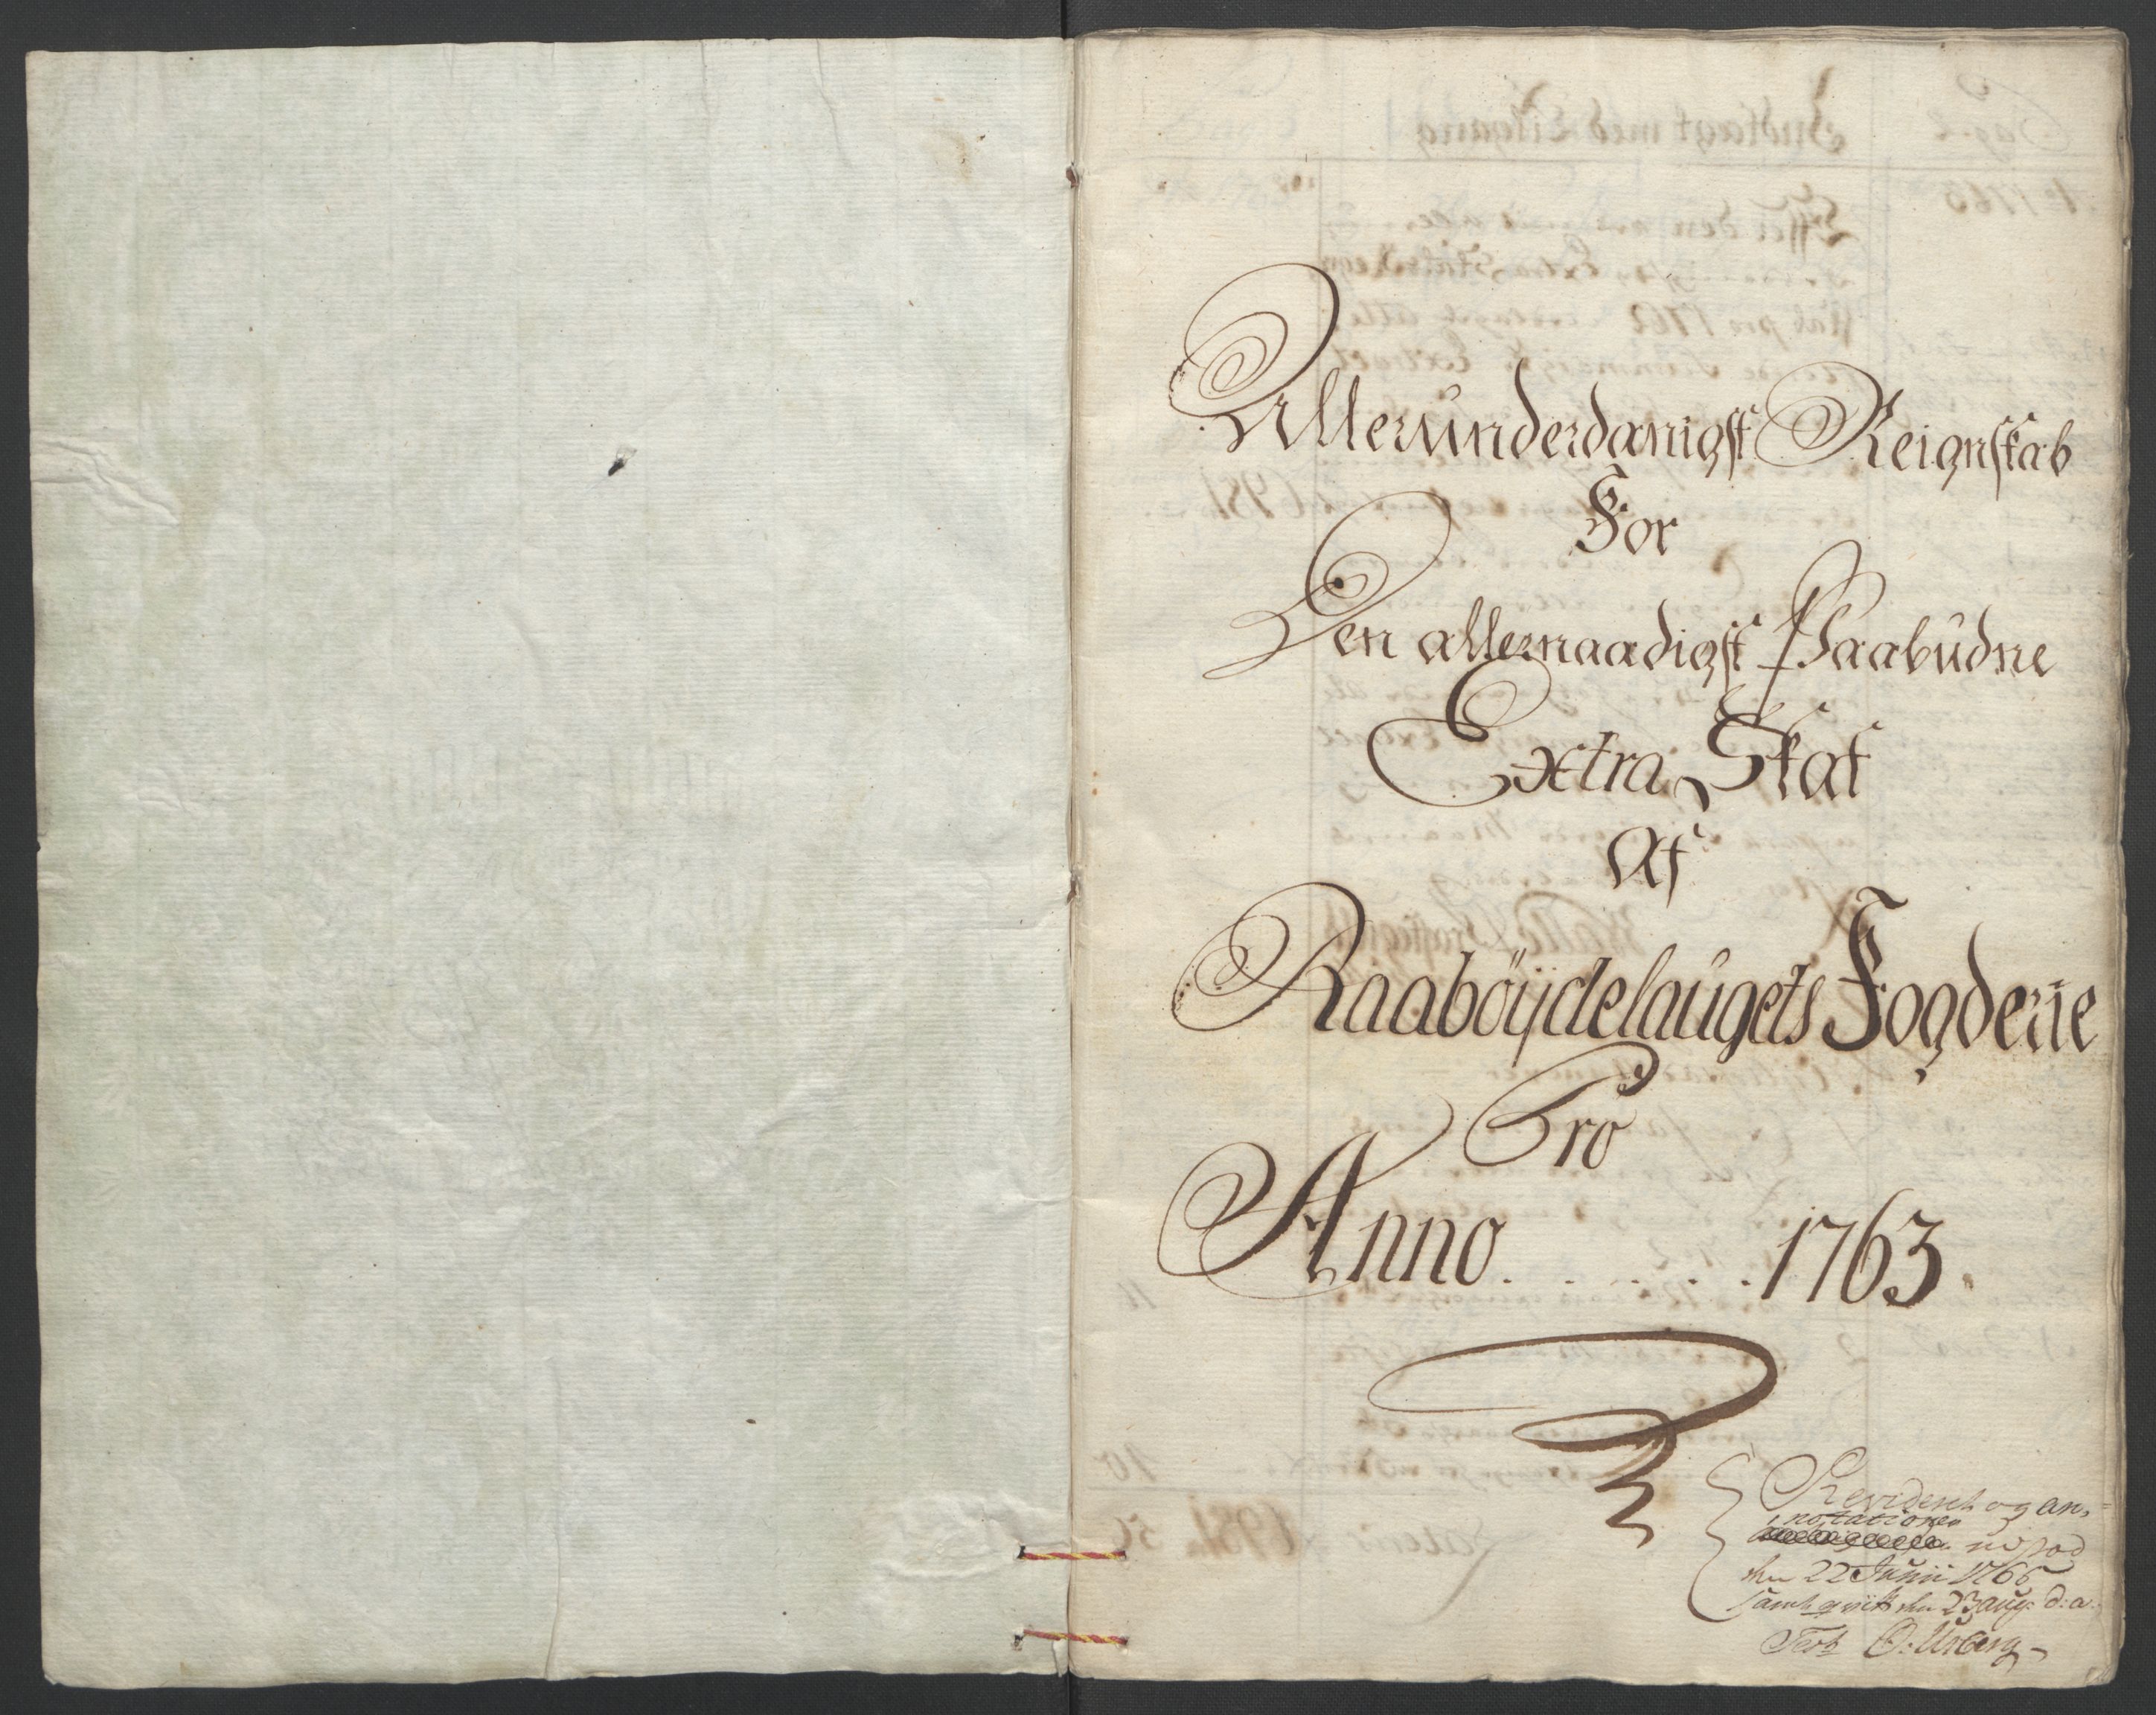 Allerunderdanigst Reignskab
For
Den allernaadigst Paabudne
Extra Skat
Af
Raaböijdelaugets Fogderie
Pro
Anno . . . . . . 1763.
Revideret og an-
notationer
udsod
den 22 Junii 1766
samt qvitt den 23 aug: d: a.
Test O: Urberg